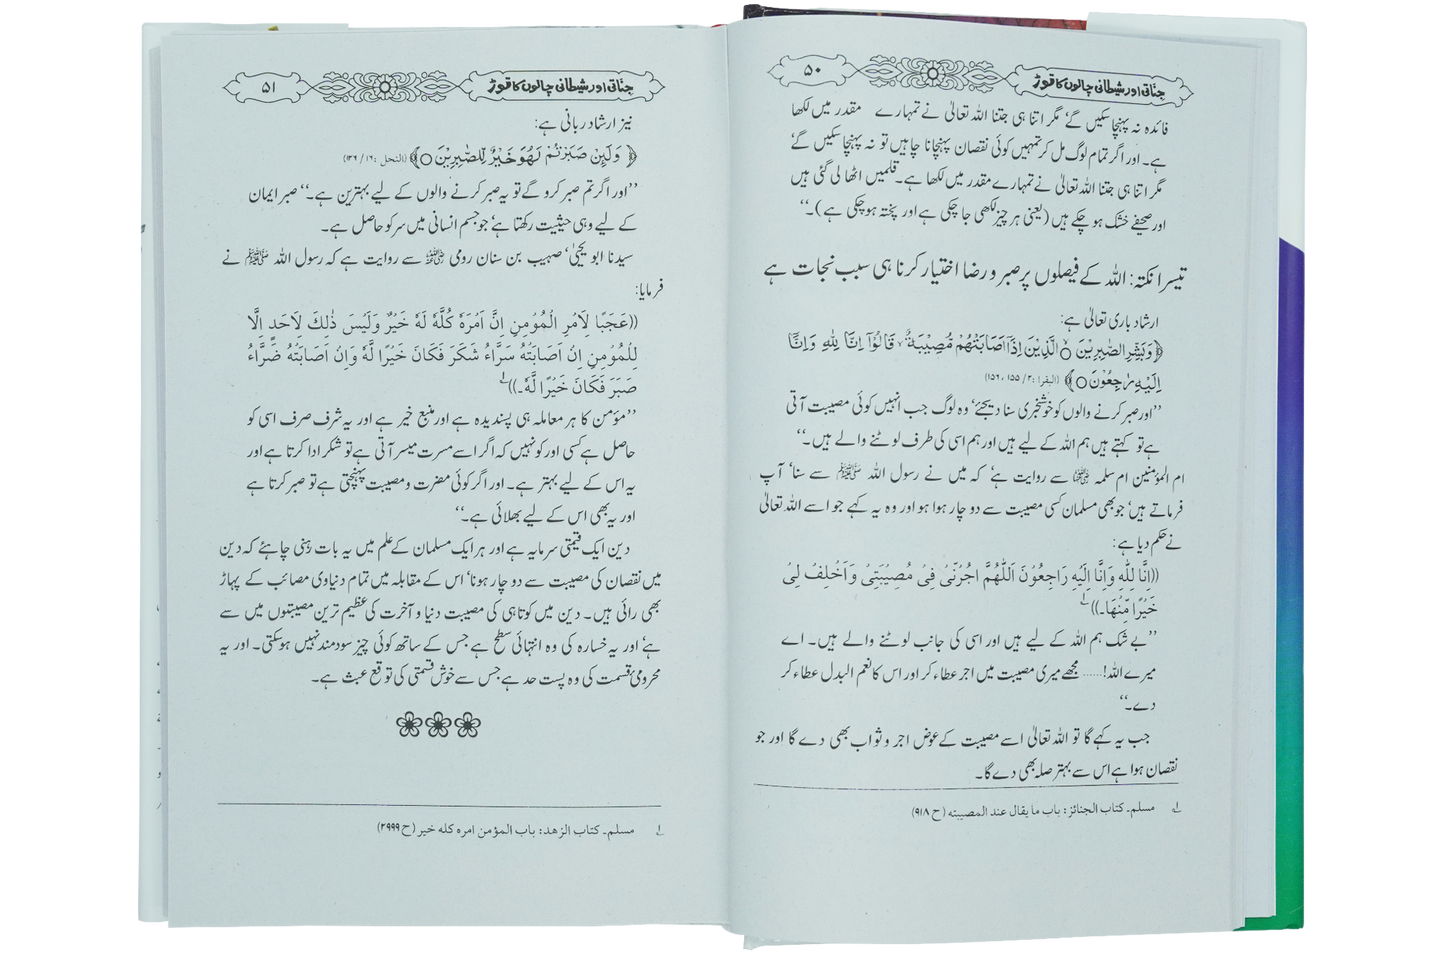 ۵۰
جناتی اور شیطانی چالوں کا توڑ
فائدہ نہ پہنچا سکیں گے، مگر اتنا ہی جتنا اللہ تعالیٰ نے تمہارے مقدر میں لکھا
ہے۔ اور اگر تمام لوگ مل کر تمہیں کوئی نقصان پہنچانا چاہیں تو نہ پہنچا سکیں گے
مگر اتنا ہی جتنا اللہ تعالیٰ نے تمہارے مقدر میں لکھا ہے۔ قلمیں اٹھا لی گئی ہیں
اور صحیفے خشک ہو چکے ہیں (یعنی ہر چیز لکھی جا چکی ہے اور پختہ ہو چکی ہے)۔‘‘
تیسرا نکتہ: اللہ کے فیصلوں پر صبر و رضا اختیار کرنا ہی سبب نجات ہے
ارشاد باری تعالیٰ ہے:
﴿وَبَشِّرِ الصّٰبِرِیْنَ ○ الَّذِیْنَ اِذَآ اَصَابَتْهُمْ مُّصِیْبَةٌ ۙ قَالُوْٓا اِنَّا لِلّٰهِ وَاِنَّآ
اِلَیْهِ رٰجِعُوْنَ ○﴾ (البقرا :۲/ ۱۵۵، ۱۵۶)
’’اور صبر کرنے والوں کو خوشخبری سنا دیجئے، وہ لوگ جب انہیں کوئی مصیبت آتی
ہے تو کہتے ہیں ہم اللہ کے لیے ہیں اور ہم اسی کی طرف لوٹنے والے ہیں۔‘‘
ام المؤمنین ام سلمہ رضی اللہ عنہا سے روایت ہے، کہ میں نے رسول اللہ ﷺ سے سنا، آپ
فرماتے ہیں، جو بھی مسلمان کسی مصیبت سے دو چار ہوا ہو اور وہ یہ کہے جو اسے اللہ تعالیٰ
نے حکم دیا ہے:
((اِنَّا لِلّٰهِ وَاِنَّا اِلَیْهِ رَاجِعُوْنَ اَللّٰهُمَّ اجُرْنِیْ فِیْ مُصِیْبَتِیْ وَاَخْلِفْ لِیْ
خَیْرًا مِّنْهَا۔))۱
’’بے شک ہم اللہ کے لیے ہیں اور اسی کی جانب لوٹنے والے ہیں۔ اے
میرے اللہ!...... مجھے میری مصیبت میں اجر عطاء کر اور اس کا نعم البدل عطاء کر
دے۔‘‘
جب یہ کہے گا تو اللہ تعالیٰ اسے مصیبت کے عوض اجر و ثواب بھی دے گا اور جو
نقصان ہوا ہے اس سے بہتر صلہ بھی دے گا۔
۱ مسلم۔ کتاب الجنائز: باب ما یقال عند المصیبته (ح ۹۱۸)
۵۱
جناتی اور شیطانی چالوں کا توڑ
نیز ارشاد ربانی ہے:
﴿وَلَئِنْ صَبَرْتُمْ لَهُوَ خَیْرٌ لِّلصّٰبِرِیْنَ ○﴾ (النحل :۱۶/ ۱۲۶)
’’اور اگر تم صبر کرو گے تو یہ صبر کرنے والوں کے لیے بہترین ہے۔‘‘ صبر ایمان
کے لیے وہی حیثیت رکھتا ہے، جو جسم انسانی میں سر کو حاصل ہے۔
سیدنا ابو یحییٰ، صہیب بن سنان رومی رضی اللہ عنہ سے روایت ہے کہ رسول اللہ ﷺ نے
فرمایا:
((عَجَبًا لِاَمْرِ الْمُؤْمِنِ اِنَّ اَمْرَهٗ كُلَّهٗ لَهٗ خَیْرٌ وَلَیْسَ ذٰلِكَ لِاَحَدٍ اِلَّا
لِلْمُؤْمِنِ اِنْ اَصَابَتْهُ سَرَّاءُ شَكَرَ فَكَانَ خَیْرًا لَّهٗ وَاِنْ اَصَابَتْهُ ضَرَّاءُ
صَبَرَ فَكَانَ خَیْرًا لَّهٗ۔))۱
’’مؤمن کا ہر معاملہ ہی پسندیدہ ہے اور منبع خیر ہے اور یہ شرف صرف اسی کو
حاصل ہے کسی اور کو نہیں کہ اگر اسے مسرت میسر آتی ہے تو شکر ادا کرتا ہے اور
یہ اس کے لیے بہتر ہے۔ اور اگر کوئی مضرت و مصیبت پہنچتی ہے تو صبر کرتا ہے
اور یہ بھی اس کے لیے بھلائی ہے۔‘‘
دین ایک قیمتی سرمایہ ہے اور ہر ایک مسلمان کے علم میں یہ بات رہنی چاہئے کہ دین
میں نقصان کی مصیبت سے دو چار ہونا، اس کے مقابلہ میں تمام دنیاوی مصائب کے پہاڑ
بھی رائی ہیں۔ دین میں کوتاہی کی مصیبت دنیا و آخرت کی عظیم ترین مصیبتوں میں سے
ہے، اور یہ خسارہ کی وہ انتہائی سطح ہے جس کے ساتھ کوئی چیز سودمند نہیں ہو سکتی۔ اور یہ
محرومیٔ قسمت کی وہ پست حد ہے جس سے خوش قسمتی کی توقع عبث ہے۔
۱ مسلم۔ کتاب الزهد: باب المؤمن امره كله خير (ح ۲۹۹۹)